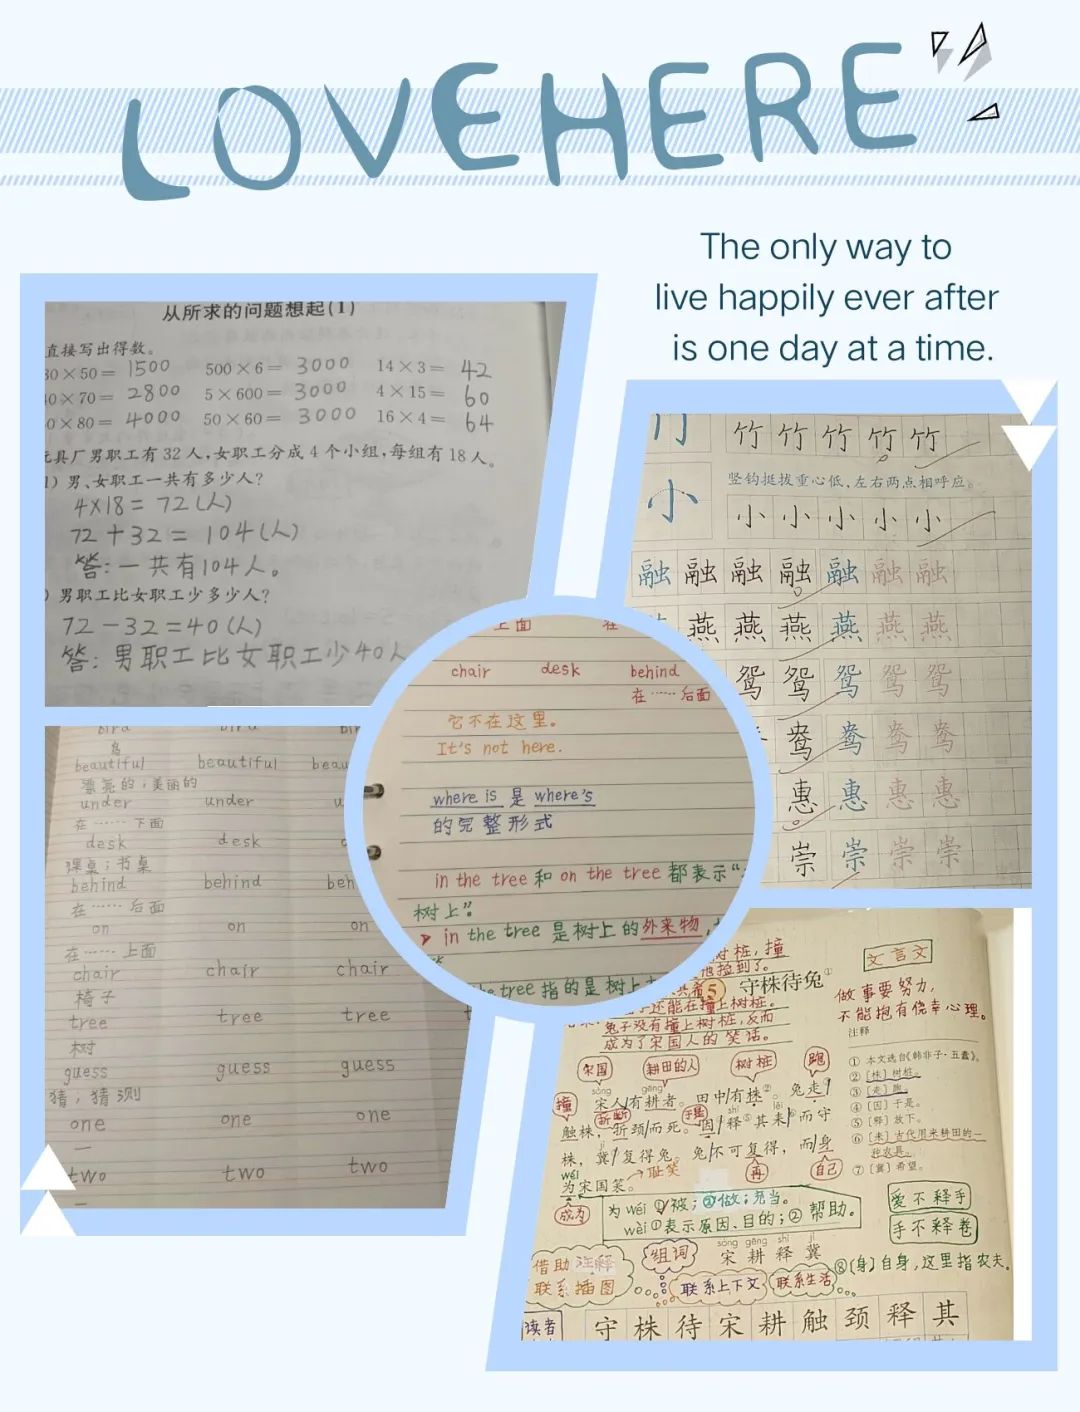 LOVEHERE
The only way to
live happily ever after
is one day at a time.
从所求的问题想起(1)
直接写出得数。
30×50= 1500 500×6= 3000 14×3= 42
40×70= 2800 5×600= 3000 4×15= 60
0×80= 4000 50×60= 3000 16×4= 64
玩具厂男职工有32人,女职工分成4个小组,每组有18人。
1) 男、女职工一共有多少人?
4×18=72(人)
72+32=104(人)
答:一共有104人。
) 男职工比女职工少多少人?
72-32=40(人)
答:男职工比女职工少40人
竹 竹 竹 竹 竹 竹
竖钩挺拔重心低,左右两点相呼应。
小 小 小 小 小 小
融 融 融 融 融 融 融
燕 燕 燕 燕 燕 燕
鸳 鸳 鸳 鸳 鸳
鸯 鸯 鸯 鸯
惠 惠 惠 惠
崇 崇 崇 崇
上面 在
chair desk behind
在……后面
它不在这里。
It's not here.
where is 是 where's
的完整形式
in the tree 和 on the tree 都表示"
树上"。
in the tree 是树上的外来物,
the tree 指的是树上
bird bird
鸟
beautiful beautiful beau
漂亮的;美丽的
under under
在……下面
desk desk
课桌;书桌
behind behind beh
在……后面
on on on
在……上面
chair chair chair
椅子
tree tree tree
树
guess guess guess
猜,猜测
one one one
一
two two two
树桩,撞
他捡到了。
5 守株待兔①
还能在撞上树桩。
兔子没有撞上树桩,反而
成为了宋国人的笑话。
文言文
做事要努力,
不能抱有侥幸心理。
注释
① 本文选自《韩非子·五蠹》。
②〔株〕树桩。
③〔走〕跑。
④〔因〕于是。
⑤〔释〕放下。
⑥〔耒〕古代用来耕田的一
种农具。
⑦〔冀〕希望。
宋国 耕田的人 树桩 跑
sòng gēng
宋人有耕者。田中有株②。兔走③
撞 折断 于是 shì lěi
触株,折颈而死。因④释⑤其耒⑥而守
jì
株,冀⑦复得兔。兔不可复得,而身
wéi 耻笑 再 自己
为宋国笑。
成为
为 wéi ①被;②做;充当。
wèi ①表示原因、目的;②帮助。
爱不释手
手不释卷
sòng gēng shì jì
组词 宋 耕 释 冀
⑧(身)自身,这里指农夫。
借助注释
联系插图
联系上下文 联系生活
读者
守 株 待 宋 耕 触 颈 释 其